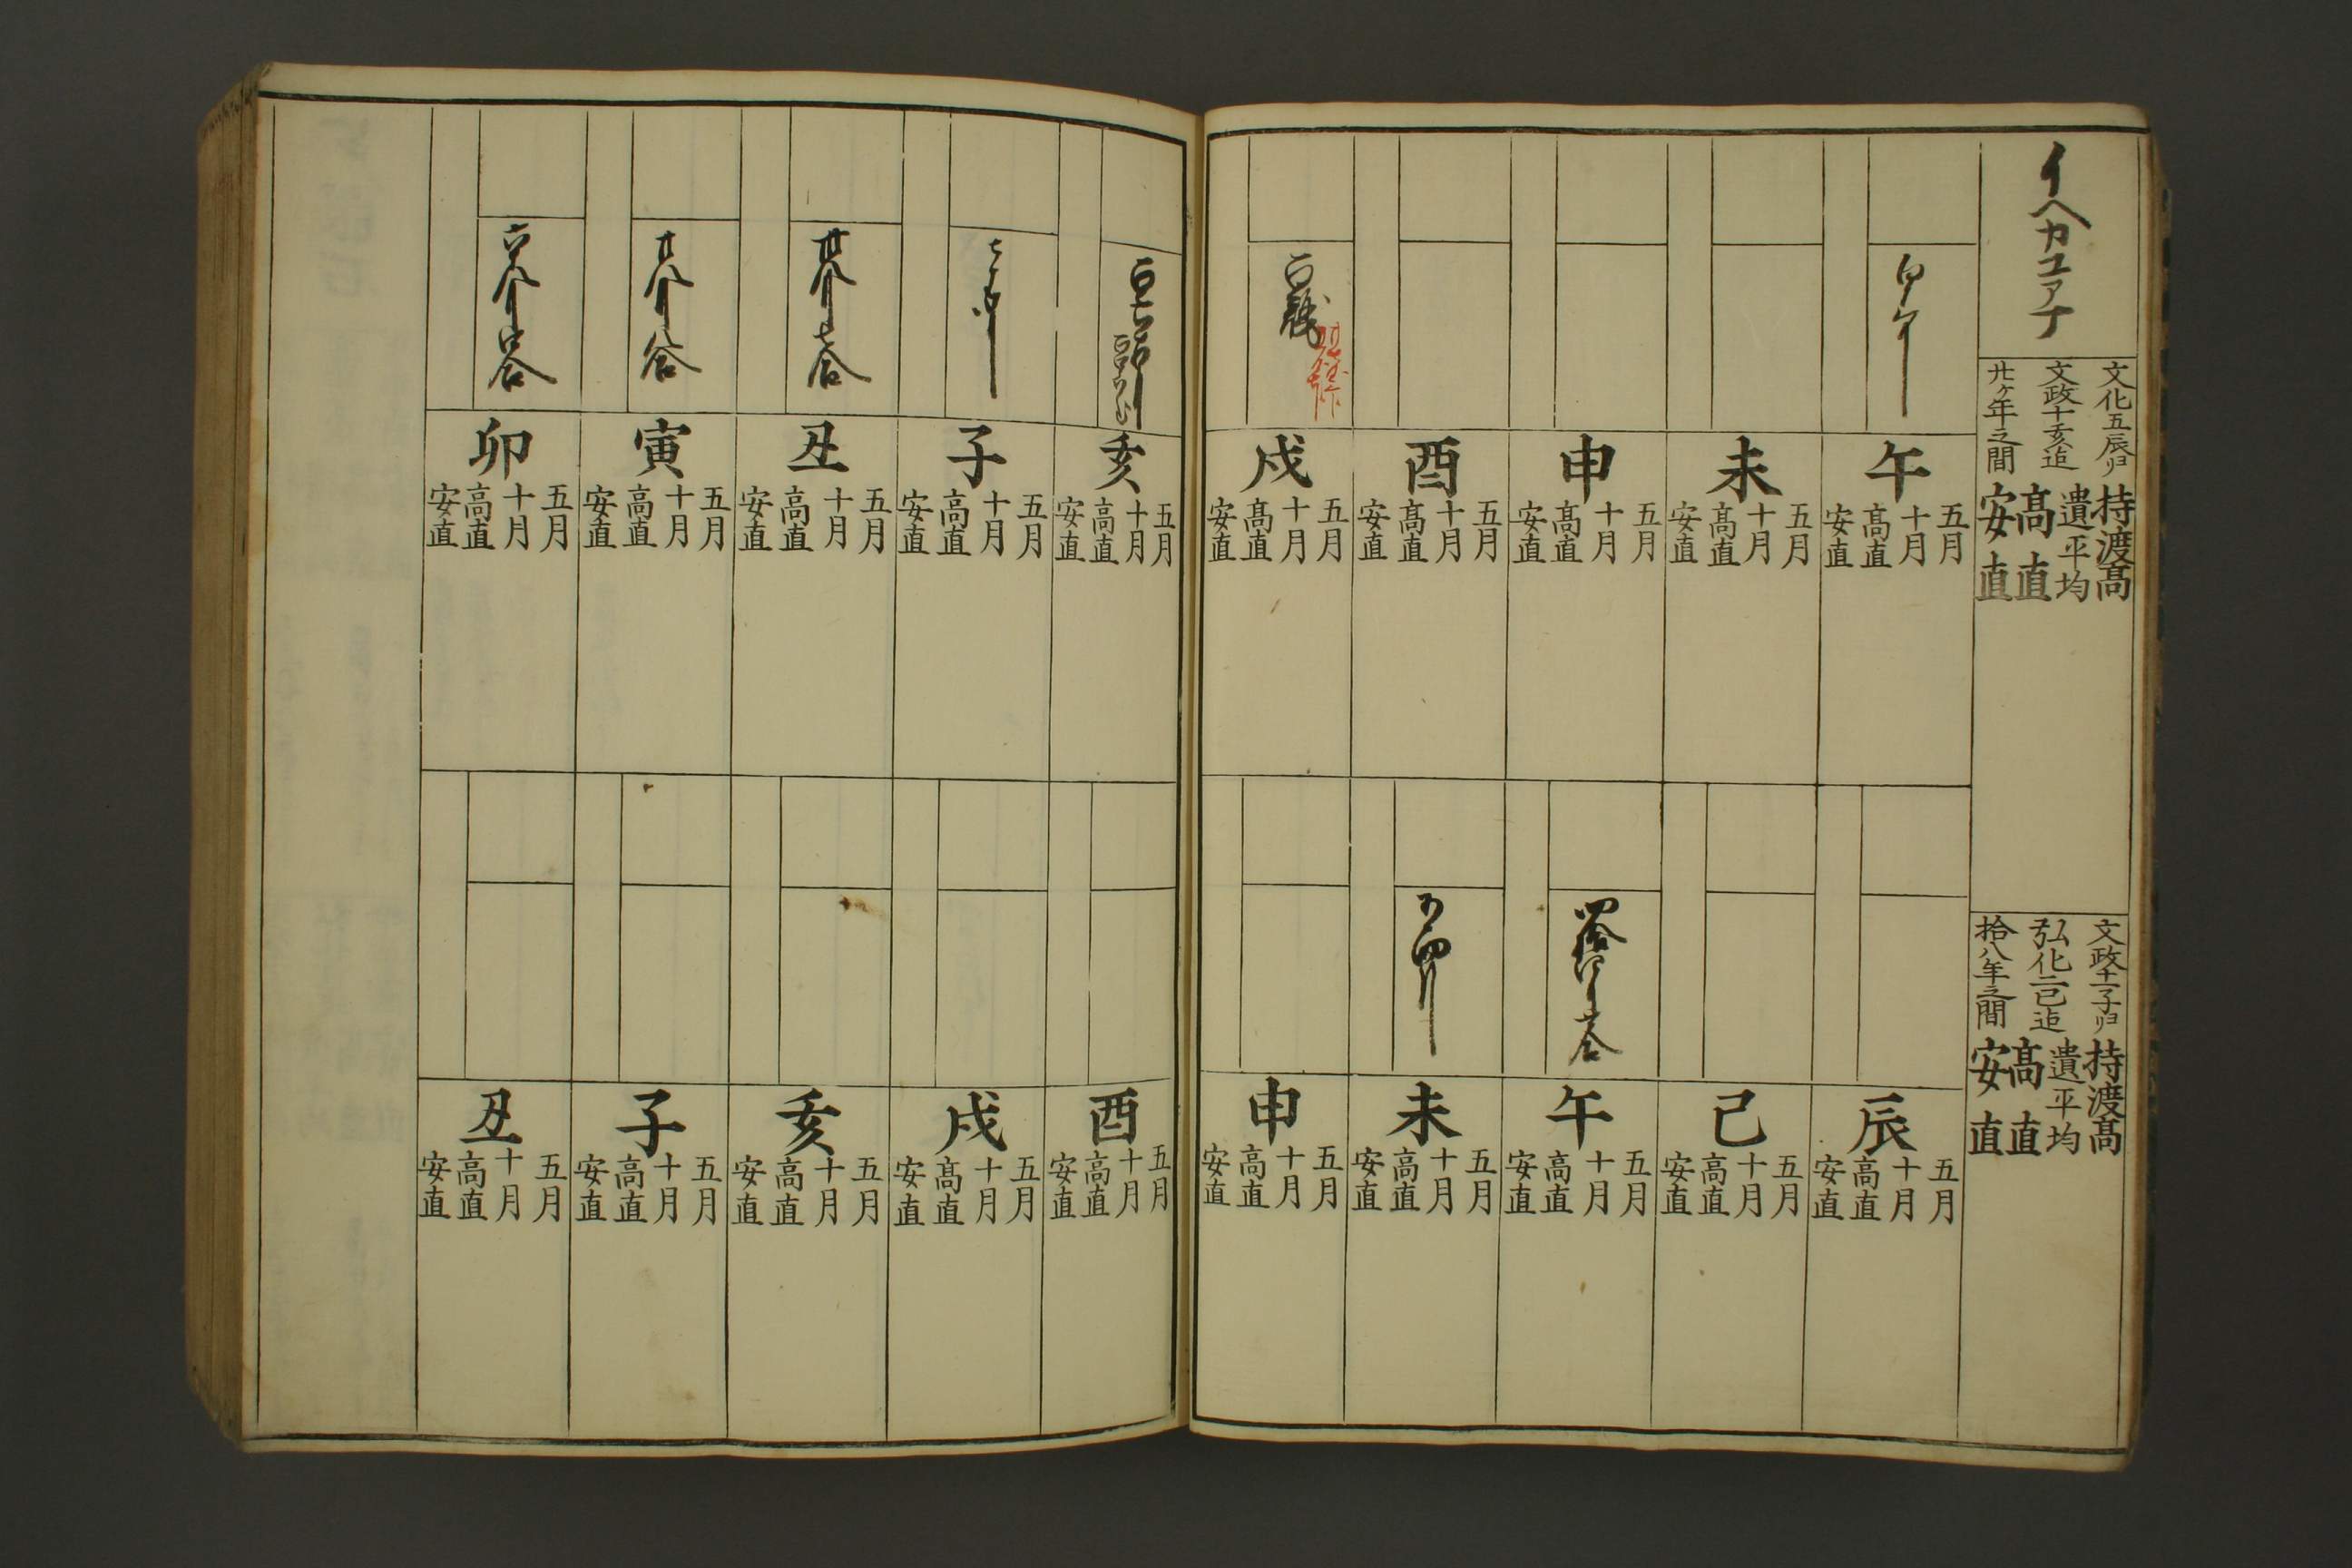 イヘカコアナ
文化五辰ゟ
文政十亥迄
廿ケ年之間
持渡髙
遺平均
髙直
安直
午
五月
十月
髙直
安直
未
五月
十月
髙直
安直
申
五月
十月
髙直
安直
酉
五月
十月
髙直
安直
戌
五月
十月
髙直
安直
文政十一子ゟ
弘化二巳迄
拾八年之間
持渡髙
遺平均
髙直
安直
辰
五月
十月
高直
安直
己
五月
十月
高直
安直
午
五月
十月
高直
安直
未
五月
十月
高直
安直
申
五月
十月
高直
安直
亥
五月
十月
高直
安直
子
五月
十月
高直
安直
丑
五月
十月
高直
安直
寅
五月
十月
高直
安直
卯
五月
十月
高直
安直
酉
五月
十月
高直
安直
戌
五月
十月
髙直
安直
亥
五月
十月
高直
安直
子
五月
十月
高直
安直
丑
五月
十月
高直
安直